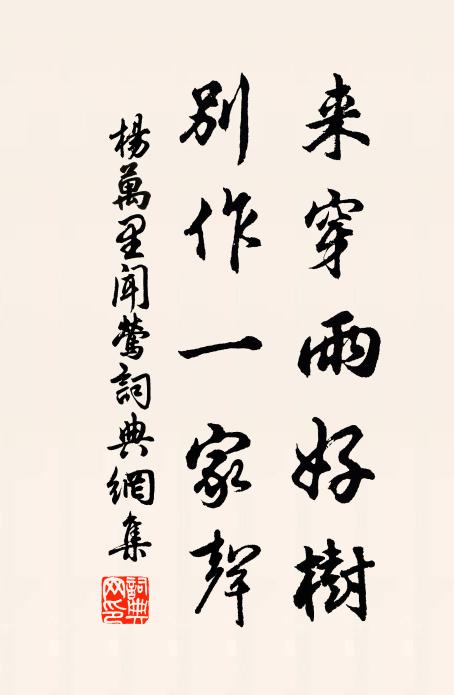 来穿雨好樹
别作一家聲
楊萬里聞鶯詞典網集
詞典網印